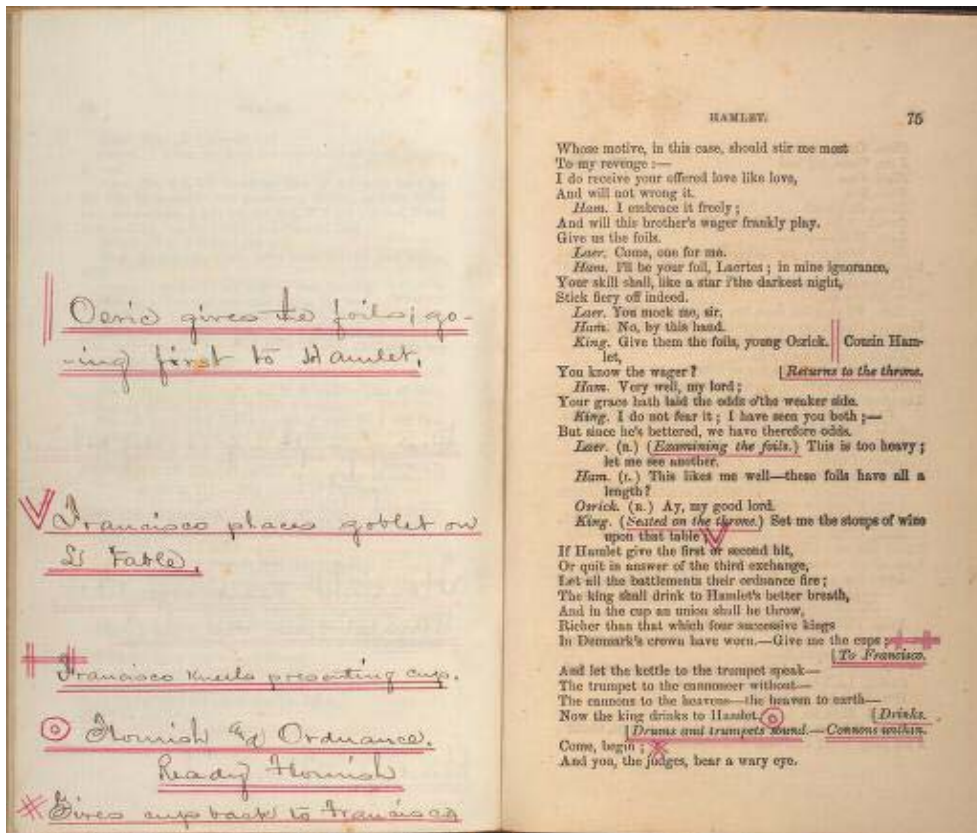 Osric gives the foils; go-
-ing first to Hamlet.
Francisco places goblet on
L Table.
Francisco kneels presenting cup.
Flourish and Ordnance.
Ready Flourish
Gives cup back to Francisco
HAMLET. 75
Whose motive, in this case, should stir me most
To my revenge :—
I do receive your offered love like love,
And will not wrong it.
Ham. I embrace it freely ;
And will this brother's wager frankly play.
Give us the foils.
Laer. Come, one for me.
Ham. I'll be your foil, Laertes ; in mine ignorance,
Your skill shall, like a star i'the darkest night,
Stick fiery off indeed.
Laer. You mock me, sir.
Ham. No, by this hand.
King. Give them the foils, young Osrick. Cousin Ham-
let,
You know the wager ? [Returns to the throne.
Ham. Very well, my lord ;
Your grace hath laid the odds o'the weaker side.
King. I do not fear it ; I have seen you both ;—
But since he's bettered, we have therefore odds.
Laer. (R.) (Examining the foils.) This is too heavy ;
let me see another.
Ham. (L.) This likes me well—these foils have all a
length ?
Osrick. (R.) Ay, my good lord.
King. (Seated on the throne.) Set me the stoups of wine
upon that table ;
If Hamlet give the first or second hit,
Or quit in answer of the third exchange,
Let all the battlements their ordnance fire ;
The king shall drink to Hamlet's better breath,
And in the cup an union shall he throw,
Richer than that which four successive kings
In Denmark's crown have worn.—Give me the cups ;
[To Francisco.
And let the kettle to the trumpet speak—
The trumpet to the cannoneer without—
The cannons to the heavens—the heaven to earth—
Now the king drinks to Hamlet. [Drinks.
[Drums and trumpets sound.—Cannons within.
Come, begin ;
And you, the judges, bear a wary eye.